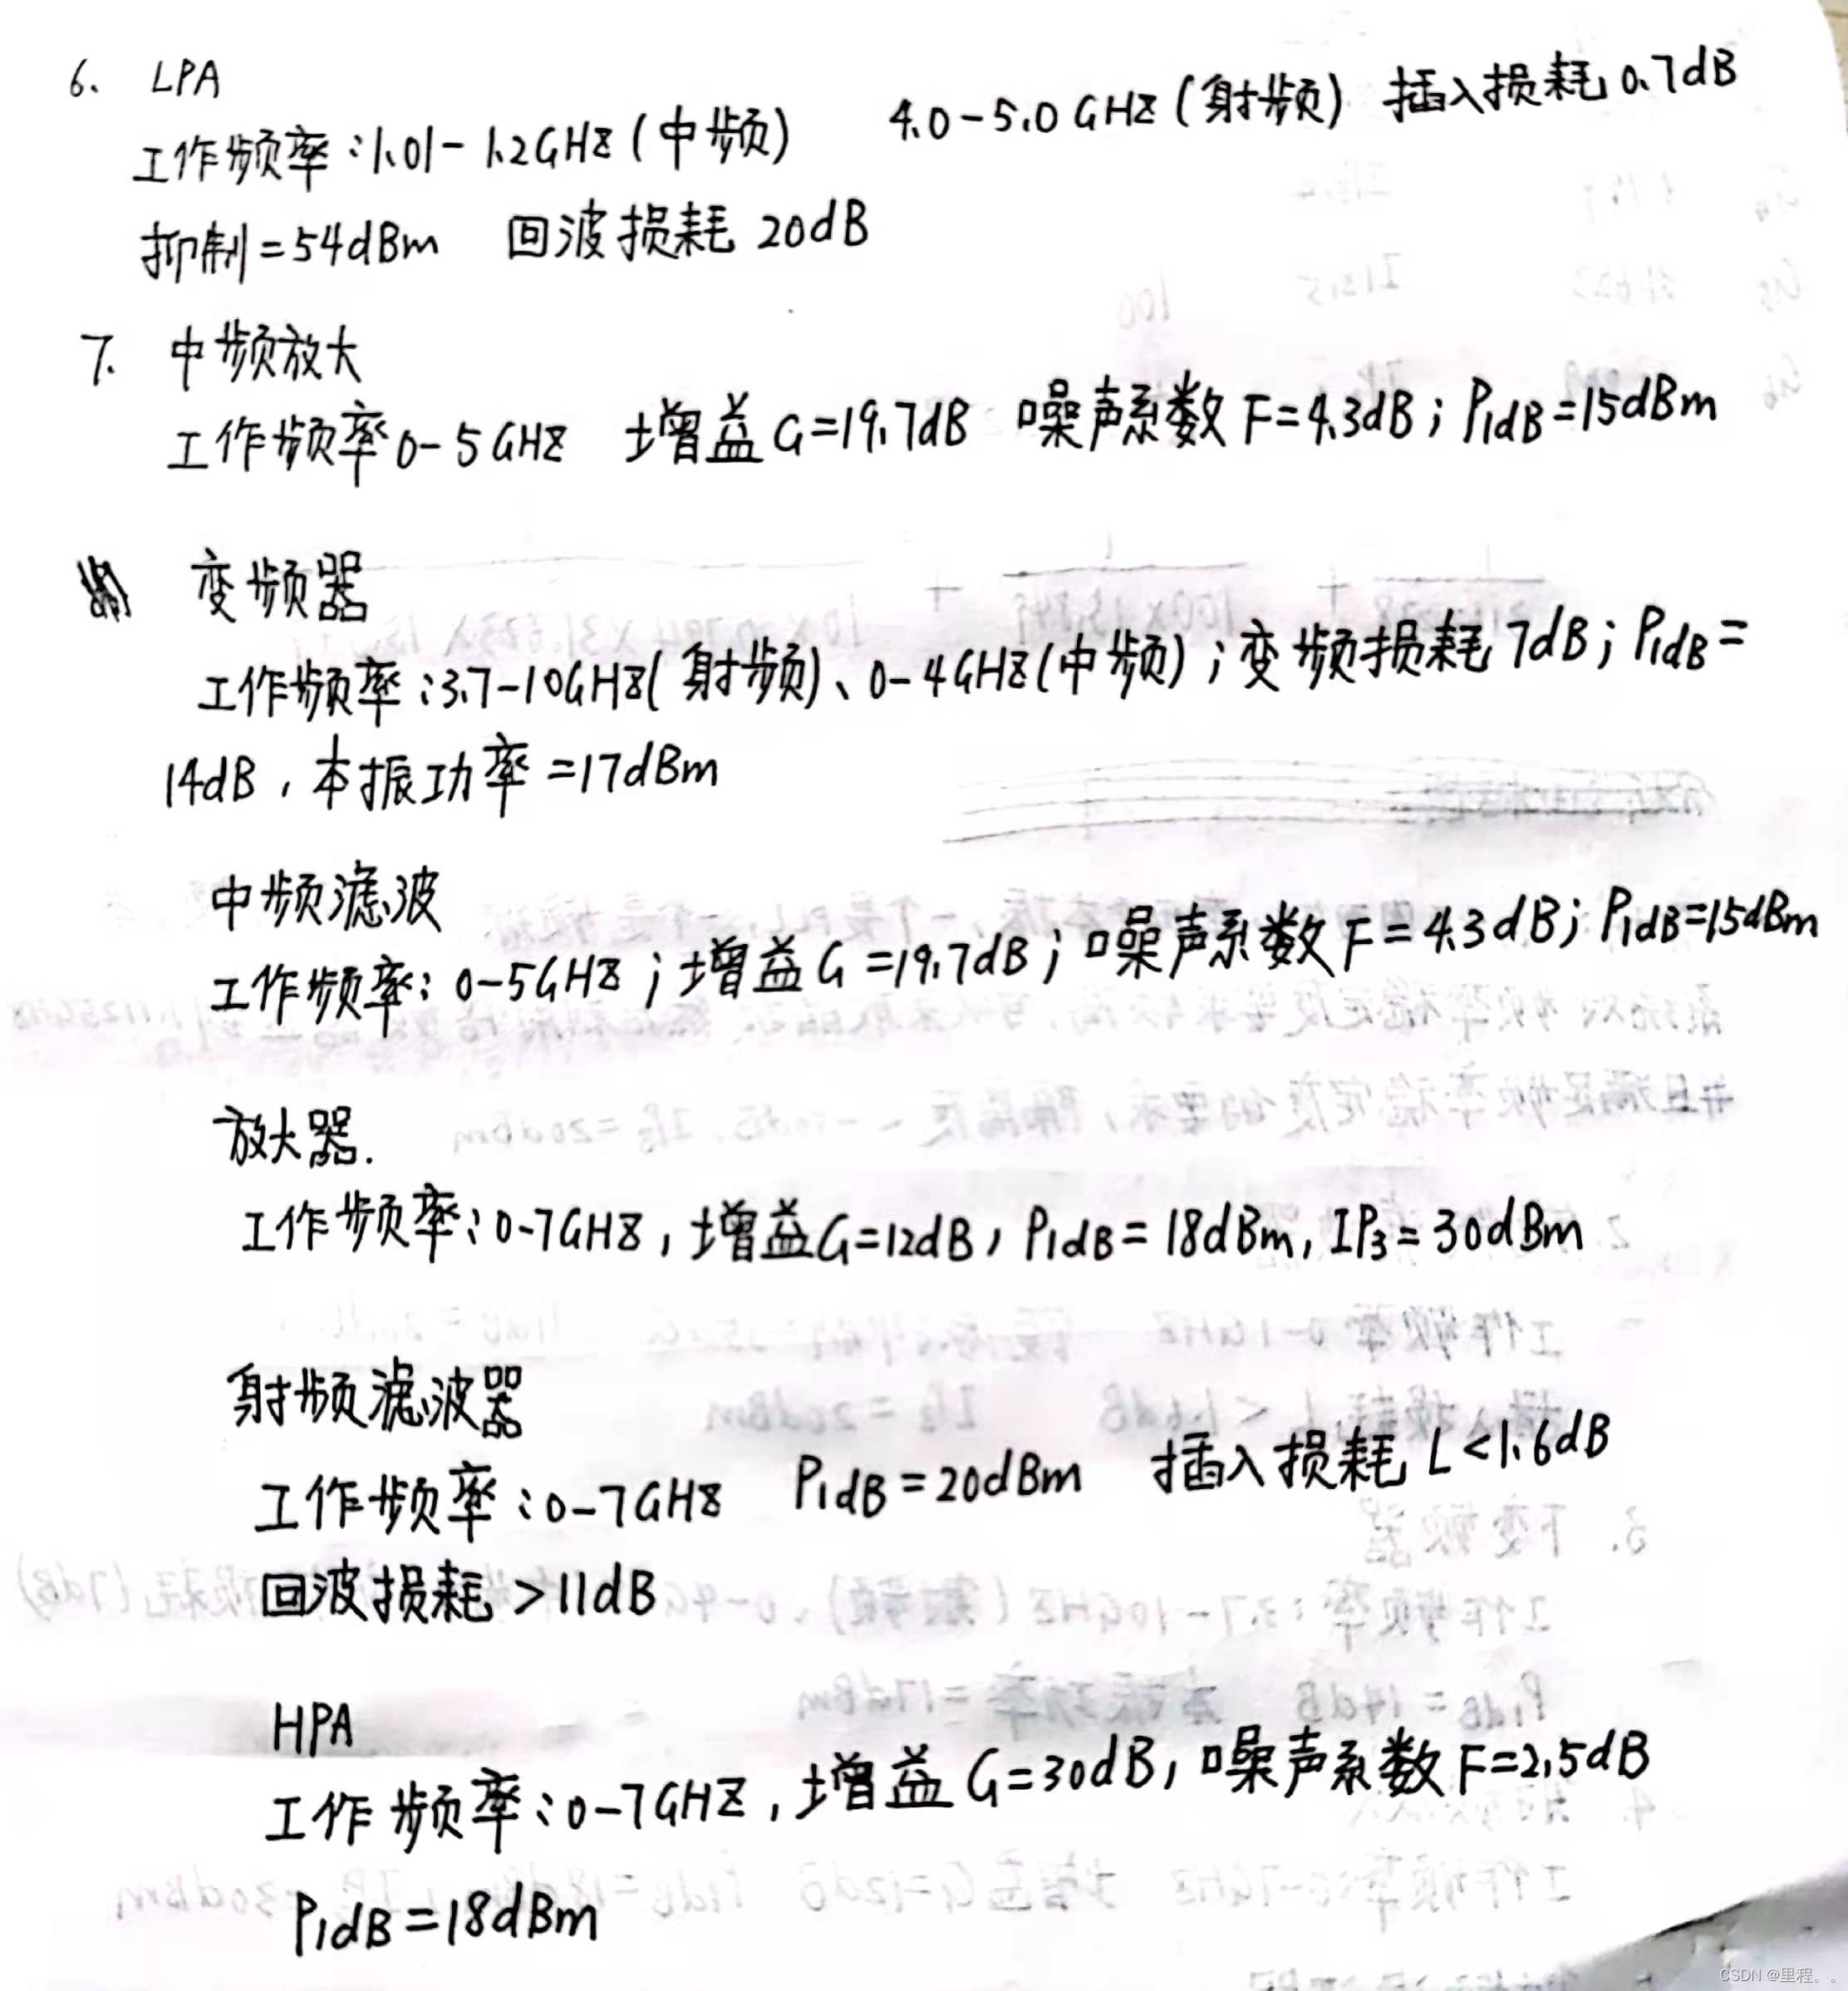 6. LPA
工作频率:1.01-1.2GHz(中频) 4.0-5.0GHz(射频) 插入损耗0.7dB
抑制=54dBm 回波损耗 20dB
7. 中频放大
工作频率0-5GHz 增益G=19.7dB 噪声系数F=4.3dB; P1dB=15dBm
变频器
工作频率:3.7-10GHz(射频)、0-4GHz(中频);变频损耗7dB; P1dB=
14dB,本振功率=17dBm
中频滤波
工作频率: 0-5GHz;增益G=19.7dB;噪声系数F=4.3dB; P1dB=15dBm
放大器.
工作频率:0-7GHz,增益G=12dB, P1dB=18dBm, IP3=30dBm
射频滤波器
工作频率:0-7GHz P1dB=20dBm 插入损耗L<1.6dB
回波损耗>11dB
HPA
工作频率:0-7GHz,增益G=30dB,噪声系数F=2.5dB
P1dB=18dBm
CSDN @里程。。